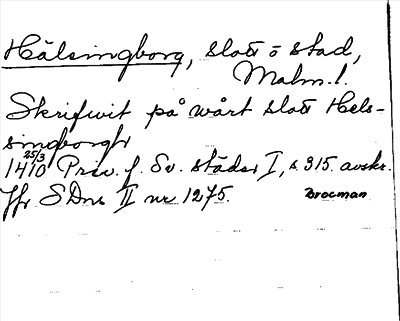 Hälsingborg, slott o stad,
Malm. l.
Skrifwit på wårt slott Hels-
singborgh
14 25/3 10 Priv. f. Sv. städer I, s. 315. avskr.
Jfr SDns II nr 1275. Brocman